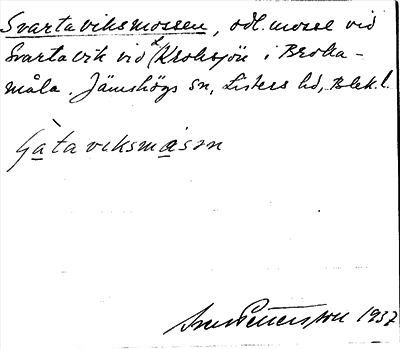 Svartaviksmossen, odl. mosse vid
Svartavik vid Kroksjön i Broka-
måla. Jämshögs sn, Listers hd, Blek. l.
Gataviksmåsan
Sven Pettersson 1937